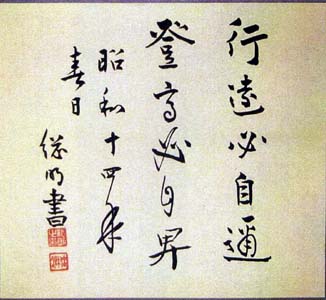 行遠必自邇
登高必自卑
昭和十四年
春日
明書